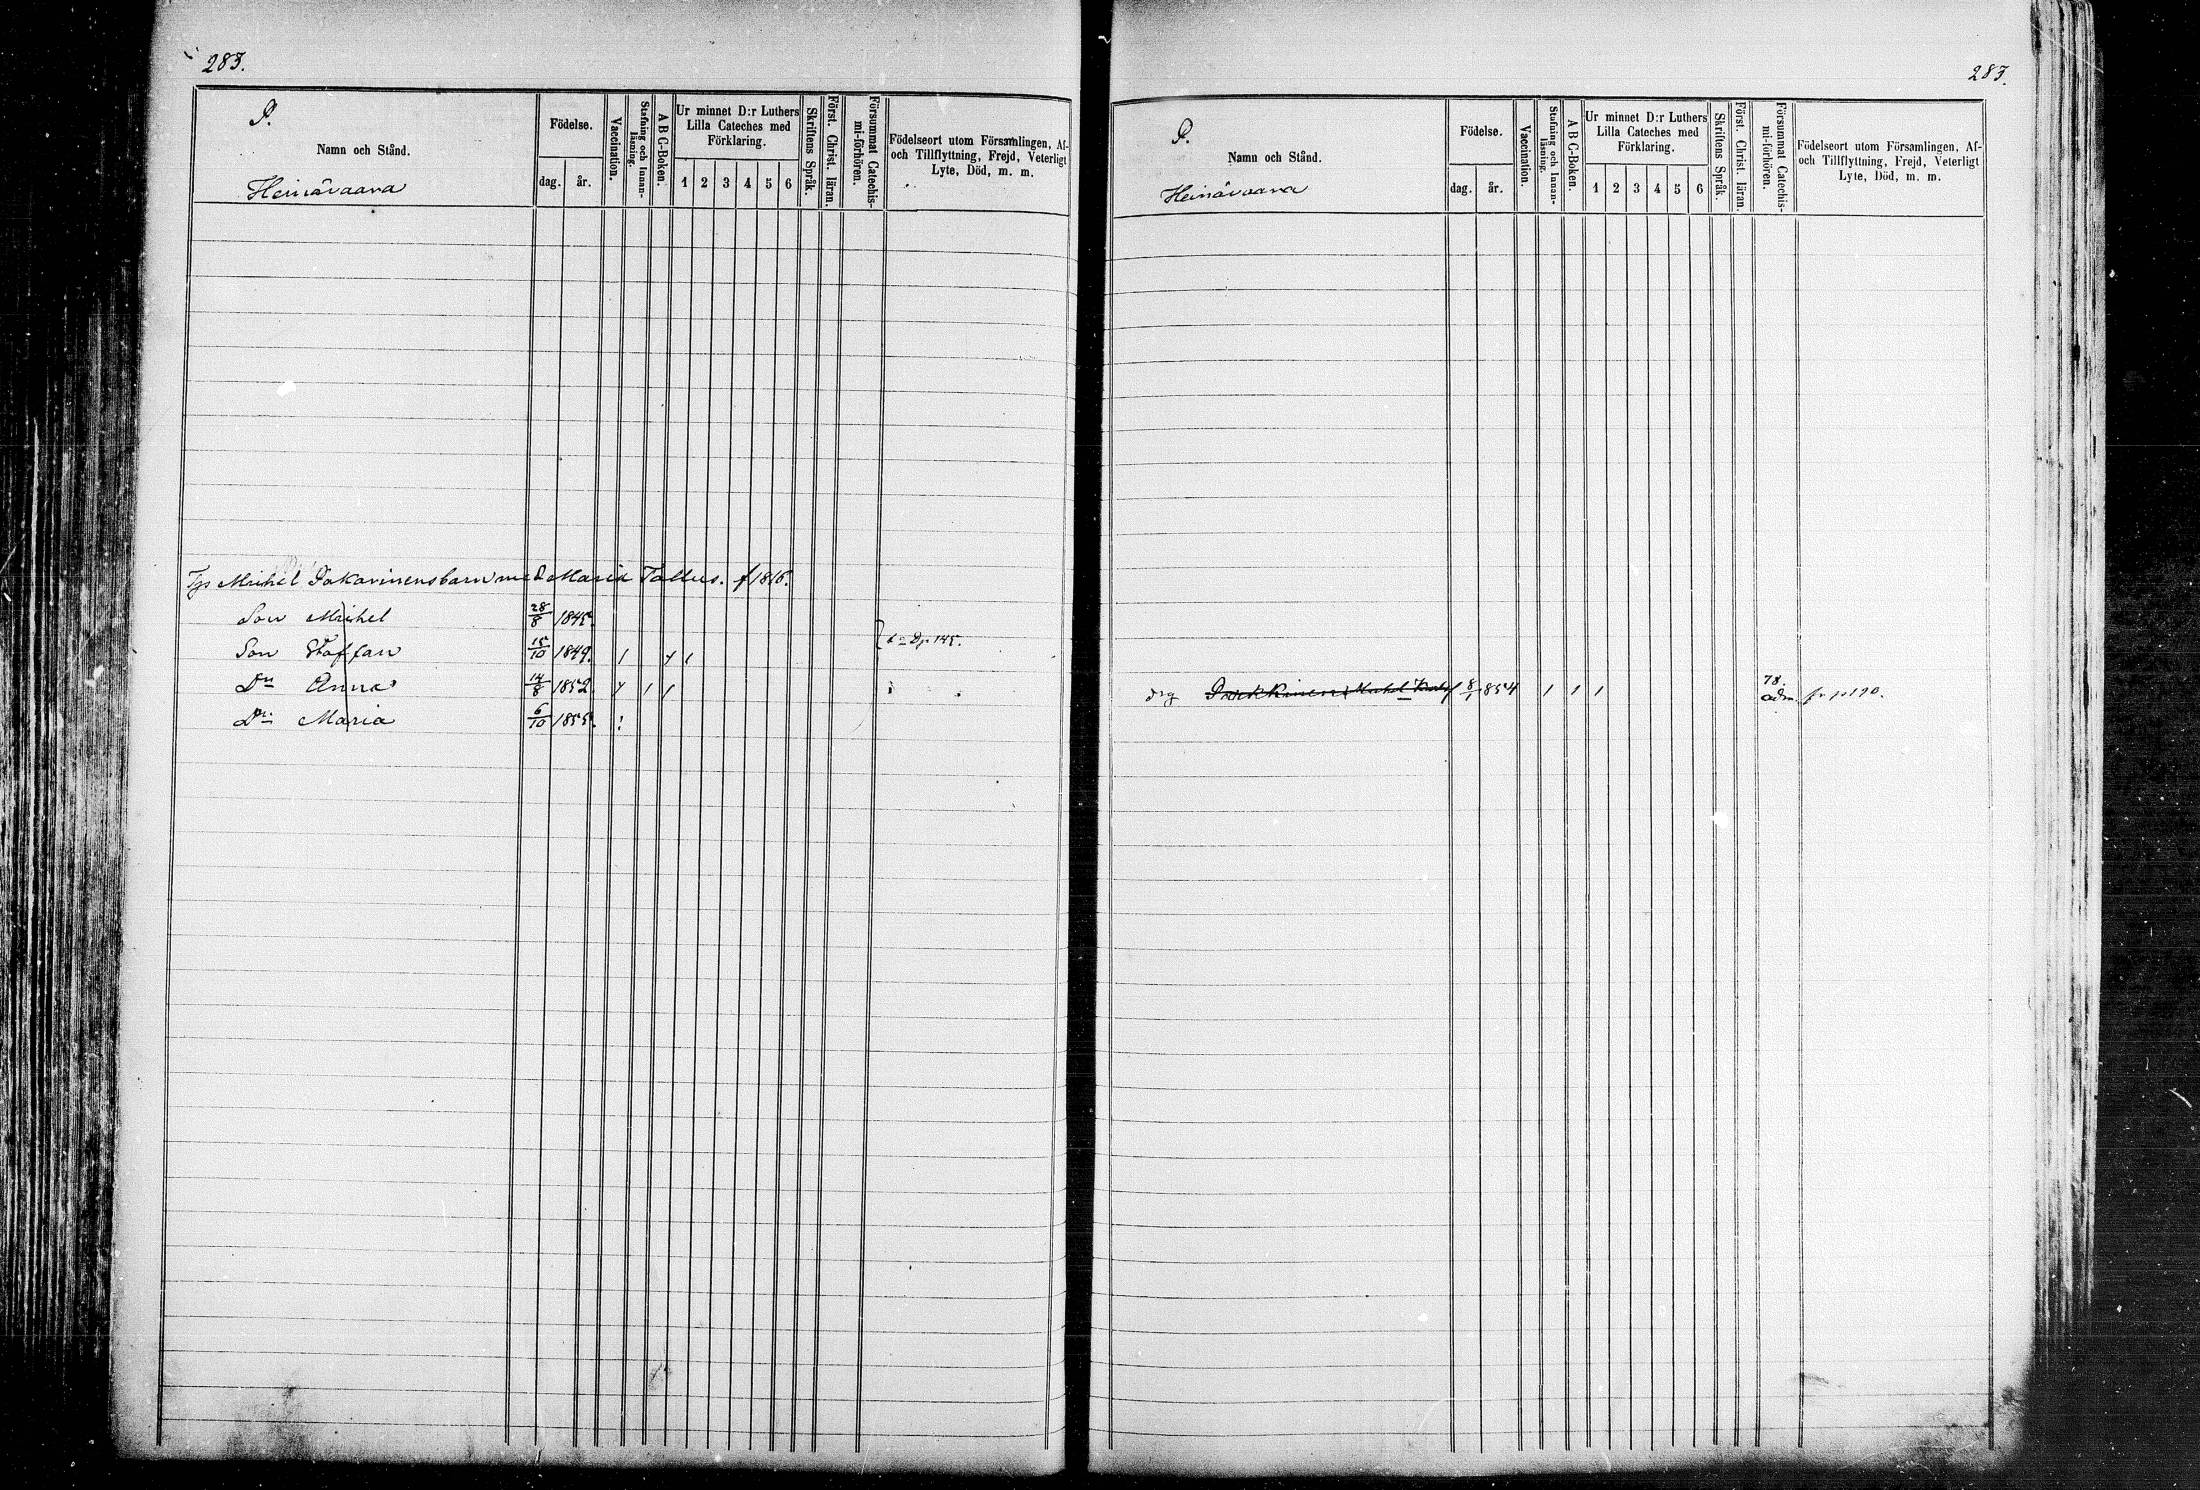 283.
P.
Namn och Stånd.
Heinävaara
Födelse.
dag. år.
Vaccination.
Stafning och Innan-
läsning.
A B C-Boken.
Ur minnet D:r Luthers
Lilla Cateches med
Förklaring.
1 2 3 4 5 6
Skriftens Språk.
Först. Christ. läran.
Försummat Catechis-
mi-förhören.
Födelseort utom Församlingen, Af-
och Tillflyttning, Frejd, Veterligt
Lyte, Död, m. m.
Michel Pakarinens barn med Maria Tallus. f 1816.
Son Michel 28/8 1845.
Son Staffan 15/10 1849. 145.
Dn Anna 14/8 1852
Dn Maria 6/10 1855.
283.
P.
Namn och Stånd.
Heinävaara
Födelse.
dag. år.
Vaccination.
Stafning och Innan-
läsning.
A B C-Boken.
Ur minnet D:r Luthers
Lilla Cateches med
Förklaring.
1 2 3 4 5 6
Skriftens Språk.
Först. Christ. läran.
Försummat Catechis-
mi-förhören.
Födelseort utom Församlingen, Af-
och Tillflyttning, Frejd, Veterligt
Lyte, Död, m. m.
drg Michel 8/1 854 78. adm. fr p 190.